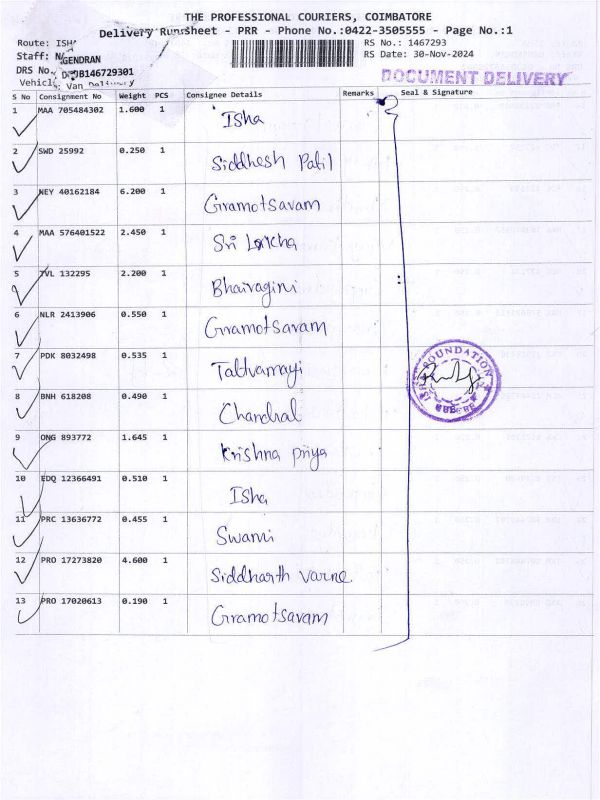 THE PROFESSIONAL COURIERS, COIMBATORE
Delivery Runsheet - PRR - Phone No.:0422-3505555 - Page No.:1
Route: ISHA
RS No.: 1467293
Staff: GENDRAN
RS Date: 30-Nov-2024
DRS No. 146729301
DOCUMENT DELIVERY
Van Delivery
S No Consignment No Weight PCS Consignee Details Remarks Seal & Signature
1 MAA 705484302 1.600 1 Isha
2 SWD 25992 0.250 1 Siddhesh Patil
3 NEY 40162184 6.200 1 Gramotsavam
4 MAA 576401522 2.450 1 Sri
5 TVL 132295 2.200 1 Bhairagini
6 NLR 2413906 0.550 1 Gramotsavam
7 PDK 8032498 0.535 1 Tattvamayi
FOUNDATION
8 BNH 618208 0.490 1 Chandral
9 ONG 893772 1.645 1 Krishna priya
10 EDQ 12366491 0.510 1 Isha
11 PRC 13636772 0.455 1 Swami
12 PRO 17273820 4.600 1 Siddharth varne
13 PRO 17020613 0.190 1 Gramotsavam